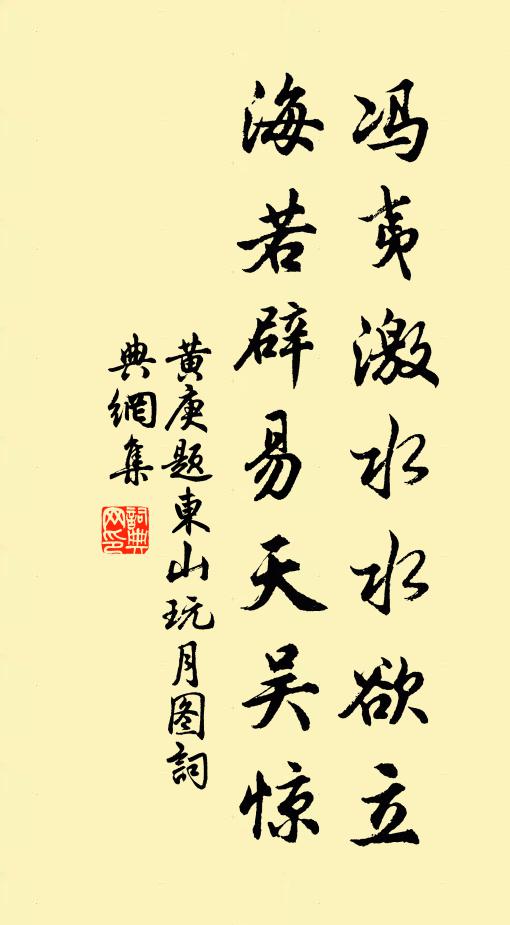 冯夷激水水欲立
海若辟易天吴惊
黄庚题東山玩月图詞
典網集
詞典
网印